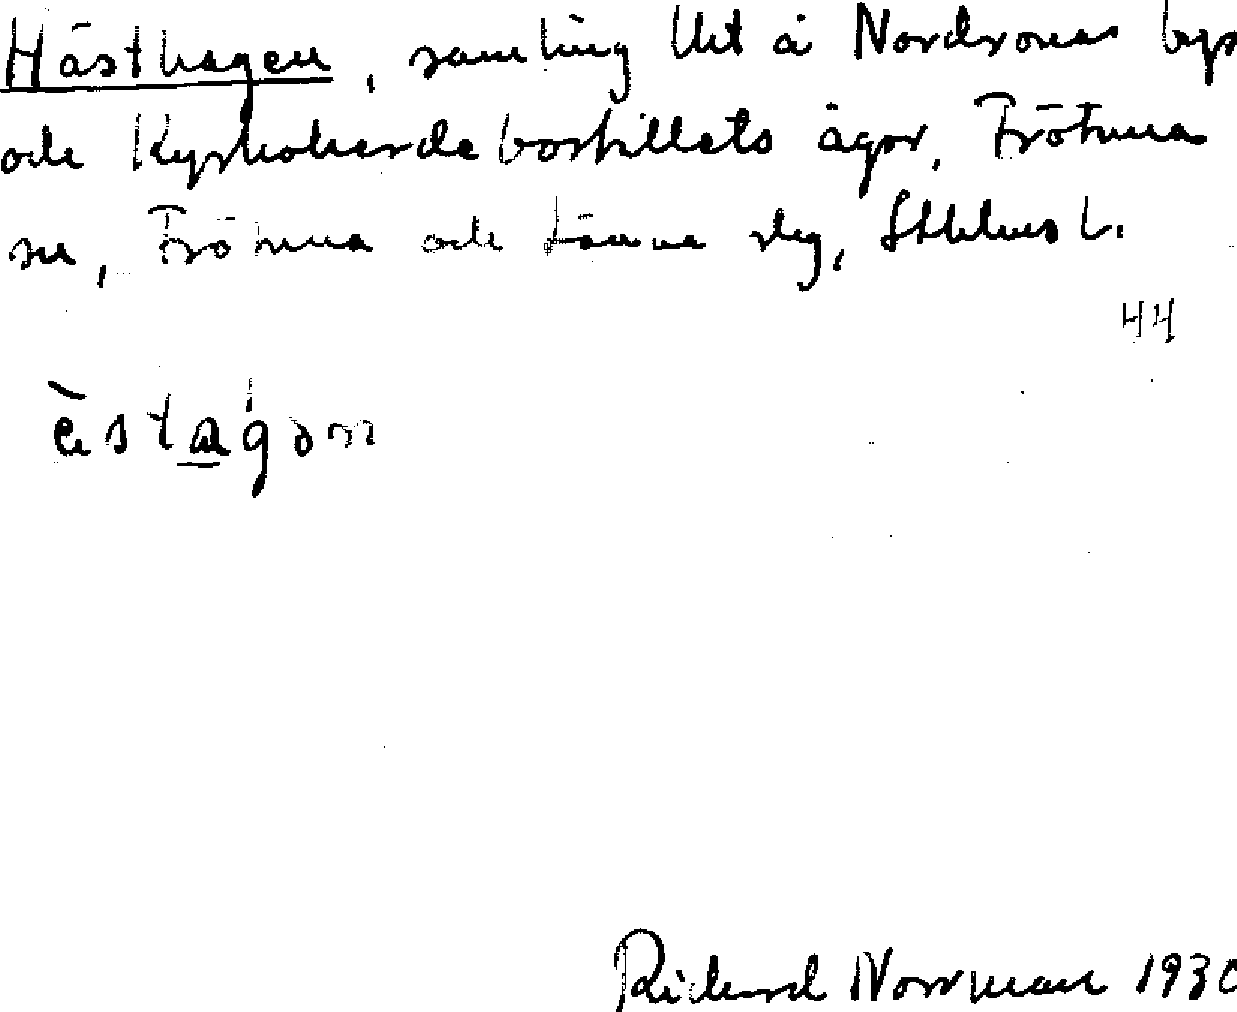 Hästhagen, samling lht å Nordronas bys
och Kyrkoherdebostillets ägor, Frötuna
sn, Frötuna och Länna slg, Sthlms l.
44
èstagon
Richard Norrman 1930